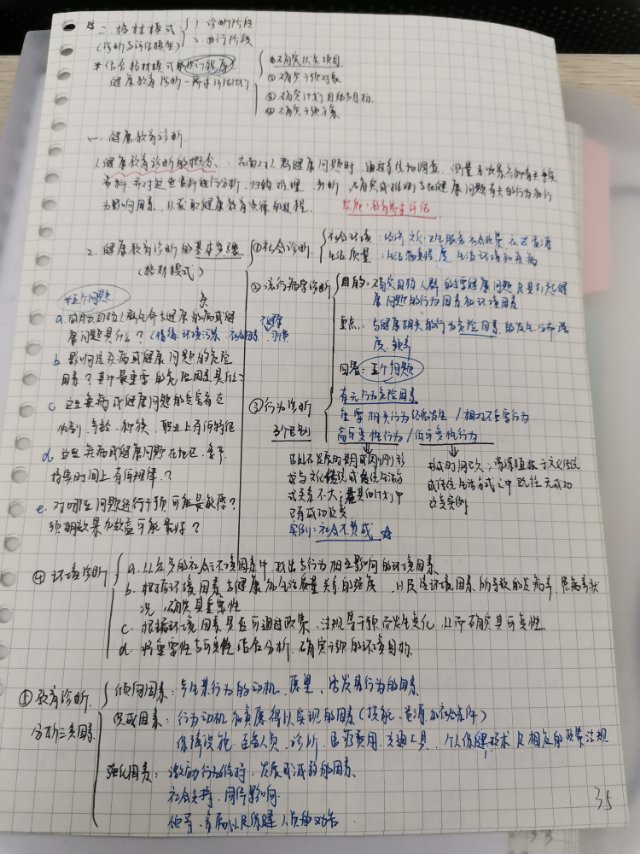 二. 格林模式 { 1. 诊断阶段
(诊断与评估模型) 2. 执行阶段
①确定优先项目
健康教育诊断
②确定干预对象
③确定计划目的与目标
④确定干预方案
一. 健康教育诊断
1. 健康教育诊断的概念: 在面对人群健康问题时, 通过系统地调查、测量来收集各种有关事实
资料, 并对这些资料进行分析、归纳、推理、判断, 确定或推测与此健康问题有关的行为和行
为影响因素, 以获取健康教育资源的过程.
2. 健康教育诊断的基本步骤
(格林模式)
①社会诊断 { 社会环境: 经济 文化 卫生服务 社会政策
生活质量:
②流行病学诊断 { 目的: 确定目标人群的主要健康问题及其引起健
康问题的行为因素和环境因素
重点: 与健康相关的行为危险因素的发生、分布、强
度、频率
回答: 五个问题
五个问题
a. 威胁目标人群生命与健康的疾病或健
康问题是什么?
b. 影响该疾病或健康问题的危险
因素? 其中最重要的危险因素是什么?
c. 这些疾病或健康问题的受害者在
性别、年龄、种族、职业上有何特征
d. 这些疾病或健康问题在地区、季节、
持续时间上有何规律?
e. 对哪些问题进行干预可能最敏感?
预期效果和效益可能最好?
③行为诊断
3个区别
区别行为危险因素
重要相关行为 / 相对不重要行为
高可变性行为 / 低可变性行为
正处在发展时期或刚刚形成
与文化传统或传统生活方
式关系不大; 在其他计划中
已有成功改变
实例: 社会不赞成
形成时间已久; 深深植根于文化传统
或传统生活方式之中; 既往无成功
改变实例
④环境诊断 { a. 从众多的社会与环境因素中, 找出与行为相互影响的环境因素
b. 根据环境因素与健康和生活质量关系的强度, 以及该环境因素所导致的发病率、患病率状
况, 确定其重要性
c. 根据环境因素是否可通过政策、法规等干预而发生变化, 从而确定其可变性
d. 将重要性与可变性结合分析, 确定干预的环境目标.
⑤教育诊断
分析三类因素
倾向因素: 产生某行为的动机、愿望、诱发某行为的因素.
促成因素: 行为动机和意愿得以实现的因素 (技能、资源和社会条件)
保健设施、医务人员、诊所、医疗费用、交通工具、个人保健技术及相应的政策法规
强化因素: 激励行为维持、发展或减弱的因素.
社会支持、同伴影响
领导、亲属以及保健人员的劝告
35